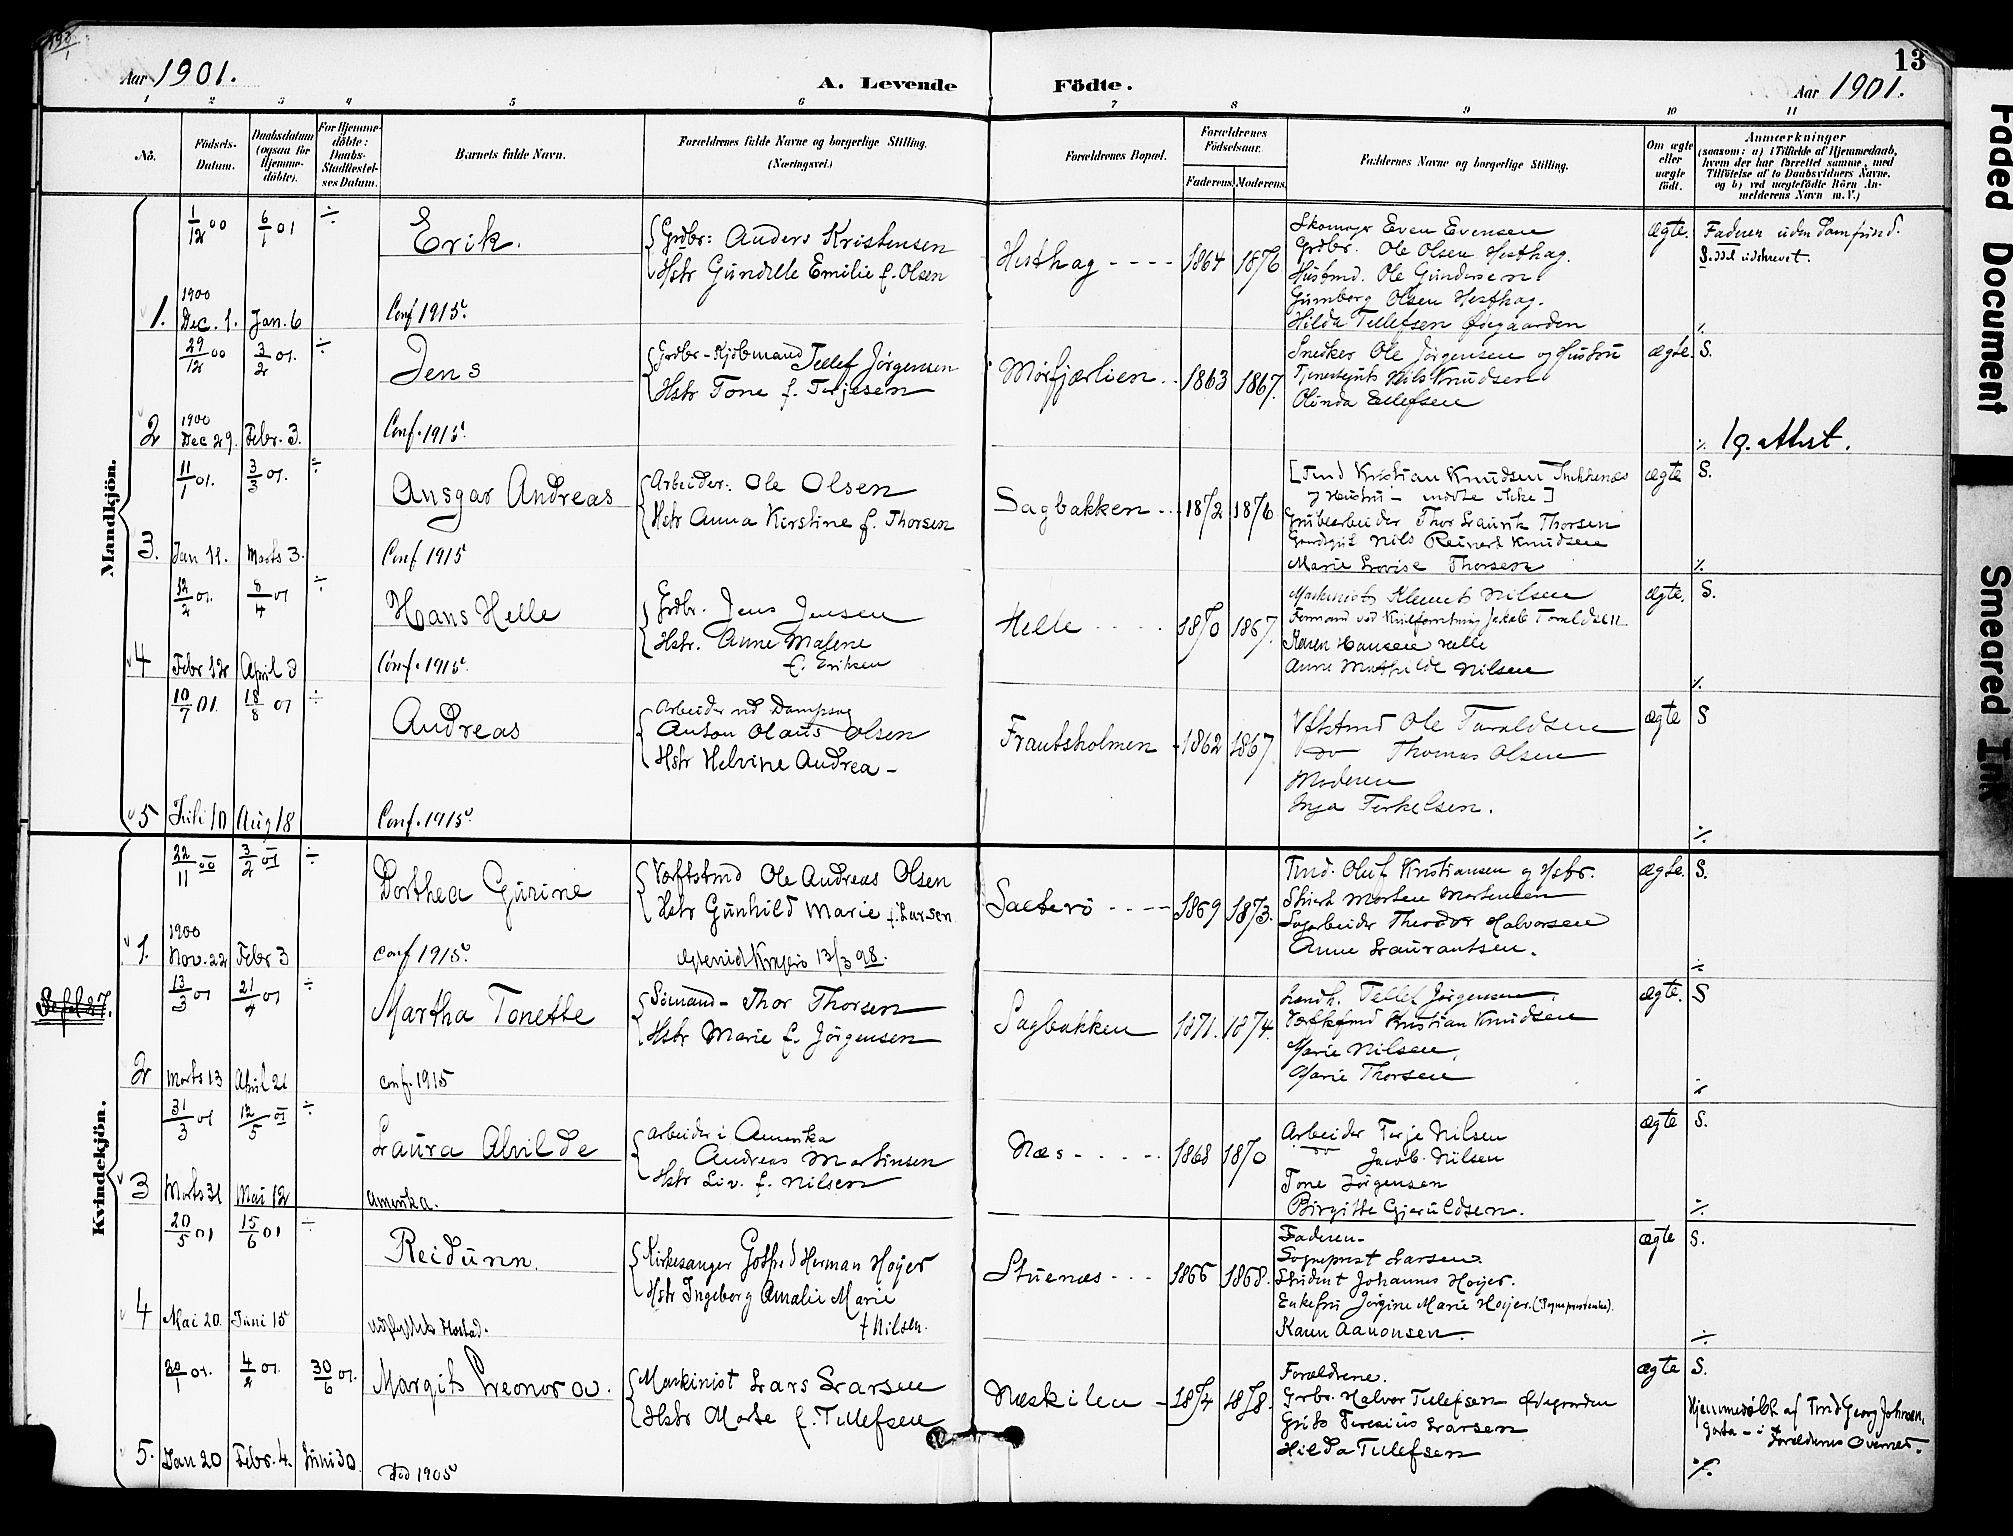 Aar 1901.
A. Levende Födte.
13
Aar 1901.
1 2 3 4 5 6 7 8 9 10 11
No.
Födsels-
Datum.
Daabsdatum
(ogsaa for
Hjemme-
döbte).
For Hjemme-
döbte:
Daabs-
Stadfæstel-
ses Datum.
Barnets fulde Navn.
Forældrenes fulde Navne og borgerlige Stilling.
(Næringsvei.)
Forældrenes Bopæl.
Forældrenes
Födselsaar.
Faderens. Moderens.
Faddernes Navne og borgerlige Stilling.
Om ægte
eller
uægte
födt.
Anmærkninger
(saasom: a) i Tilfælde af Hjemmedaab,
hvem der har forrettet samme, med
Tilföielse af to Daabsvidners Navne,
og b) ved uægtefödte Börn An-
melderens Navn m. V.)
Mandkjön.
1.
1/12 00
1900
Dec. 1.
6/1 01
Jan. 6
÷
Erik.
Conf 1915.
Grdbr: Anders Kristensen
Hstr Gundelle Emilie f. Olsen
Hesthag
1864
1876
Skomager Even Evensen
Grdbr. Ole Olsen Hesthag.
Husbmd. Ole Gundersen
Gunborg Olsen Hesthag.
Hilda Tellefsen Ødegaarden
ægte.
Faderen uden Samfund.
2
29/12 00
1900
Dec 29.
3/2 01.
Febr. 3.
÷
Jens
Conf. 1915.
Grdbr - Kjöbmand Tellef Jørgensen
Hstr Tone f. Terjesen
Mörfjærlien
1863
1867.
Snedker Ole Jørgensen og Hustru
Nils Knudsen
Olinda Ellefsen
ægte.
S.
÷ 19. Attest.
3.
11/1 01.
Jan 11.
3/3 01.
Marts 3.
÷
Ansgar Andreas
Conf 1915
Arbeider: Ole Olsen
Hstr Anna Kirstine f. Thorsen
Sagbakken
1872
1876
[Tmd Kristian Knudsen
Hustru - mödte ikke]
Grubearbeider Thor Laurik Thorsen
Nils Reinert Knudsen
Marie Lovise Thorsen
ægte
S.
4
12/2 01.
Febr 12
8/4 01
April 8
÷
Hans Helle
Conf. 1915.
Grdbr. Jens Jensen
Hstr. Anne Malene
f. Eriksen
Helle
1870
1867.
Maskinist Klemet Nilsen
Jakob Toraldsen
Karen Hansen Helle
Anna Mathilde Nilsen
ægte.
S.
5
10/7 01.
Juli 10
18/8 01
Aug 18
÷
Andreas
Conf. 1915.
Arbeider ved Dampsag
Anton Olaus Olsen
Hstr Helvine Andrea -
Frantsholmen
1862
1867
Ole Taraldsen
do Thomas Olsen
Moderen
Inga Terkelsen.
ægte
S
Kvindekjön.
1.
22/11 00
1900
Nov. 22
3/2 01
Febr 3
÷
Dorthea Gurine
Conf 1915.
Værftstmd Ole Andreas Olsen
Hstr Gunhild Marie f. Larsen
Kragerø 13/3 98.
Saeterö
1869
1873.
Tmd. Oluf Kristiansen og Hstr.
Morten Mortensen
Sagarbeider Theodor Halvorsen
Anne Laurantsen.
ægte.
S.
2
13/3 01
Marts 13
21/4 01
April 21
÷
Martha Tonette
conf. 1915
Sømand - Thor Thorsen
Hstr Marie f. Jørgensen
Sagbakken
1871.
1874.
Landh. Tellef Jørgensen
Kristian Knudsen
Marie Nilsen,
Marie Thorsen
ægte.
S
3
31/3 01
Marts 31
12/5 01
Mai 12
÷
Laura Alvilde
Amerika.
Arbeider i Amerika
Andreas Martinsen
Hstr Liv. f. Nilsen
Næs
1868
1870
Arbeider Terje Nilsen
do Jacob Nilsen
Tone Jörgensen
Birgitte Gjeruldsen.
ægte
S.
4
20/5 01
Mai 20.
15/6 01
Juni 15
÷
Reidunn.
Kirkesanger Gotfred Herman Høyer
Hstr Ingeborg Amalie Marie
f Nilsen.
Stuenæs
1866
1868.
Faderen
Sogneprest Larsen.
Student Johannes Høyer.
Enkefru Jörgine Marie Høyer.
Karen Aanonsen.
ægte
S.
5.
20/1 01.
Jan 20
4/2 01.
Febr. 4.
30/6 01.
Juni 30.
Margit Leonora.
död 1905
Maskinist Lars Larsen
Hstr Marte f. Tellefsen
Næskilen
1874
1878.
Forældrene.
Grbr. Halvor Tellefsen Ødegaarden
Larsen
Hilda Tellefsen
ægte
S.
Hjemmedöbt af Tmd Georg Johnsen,